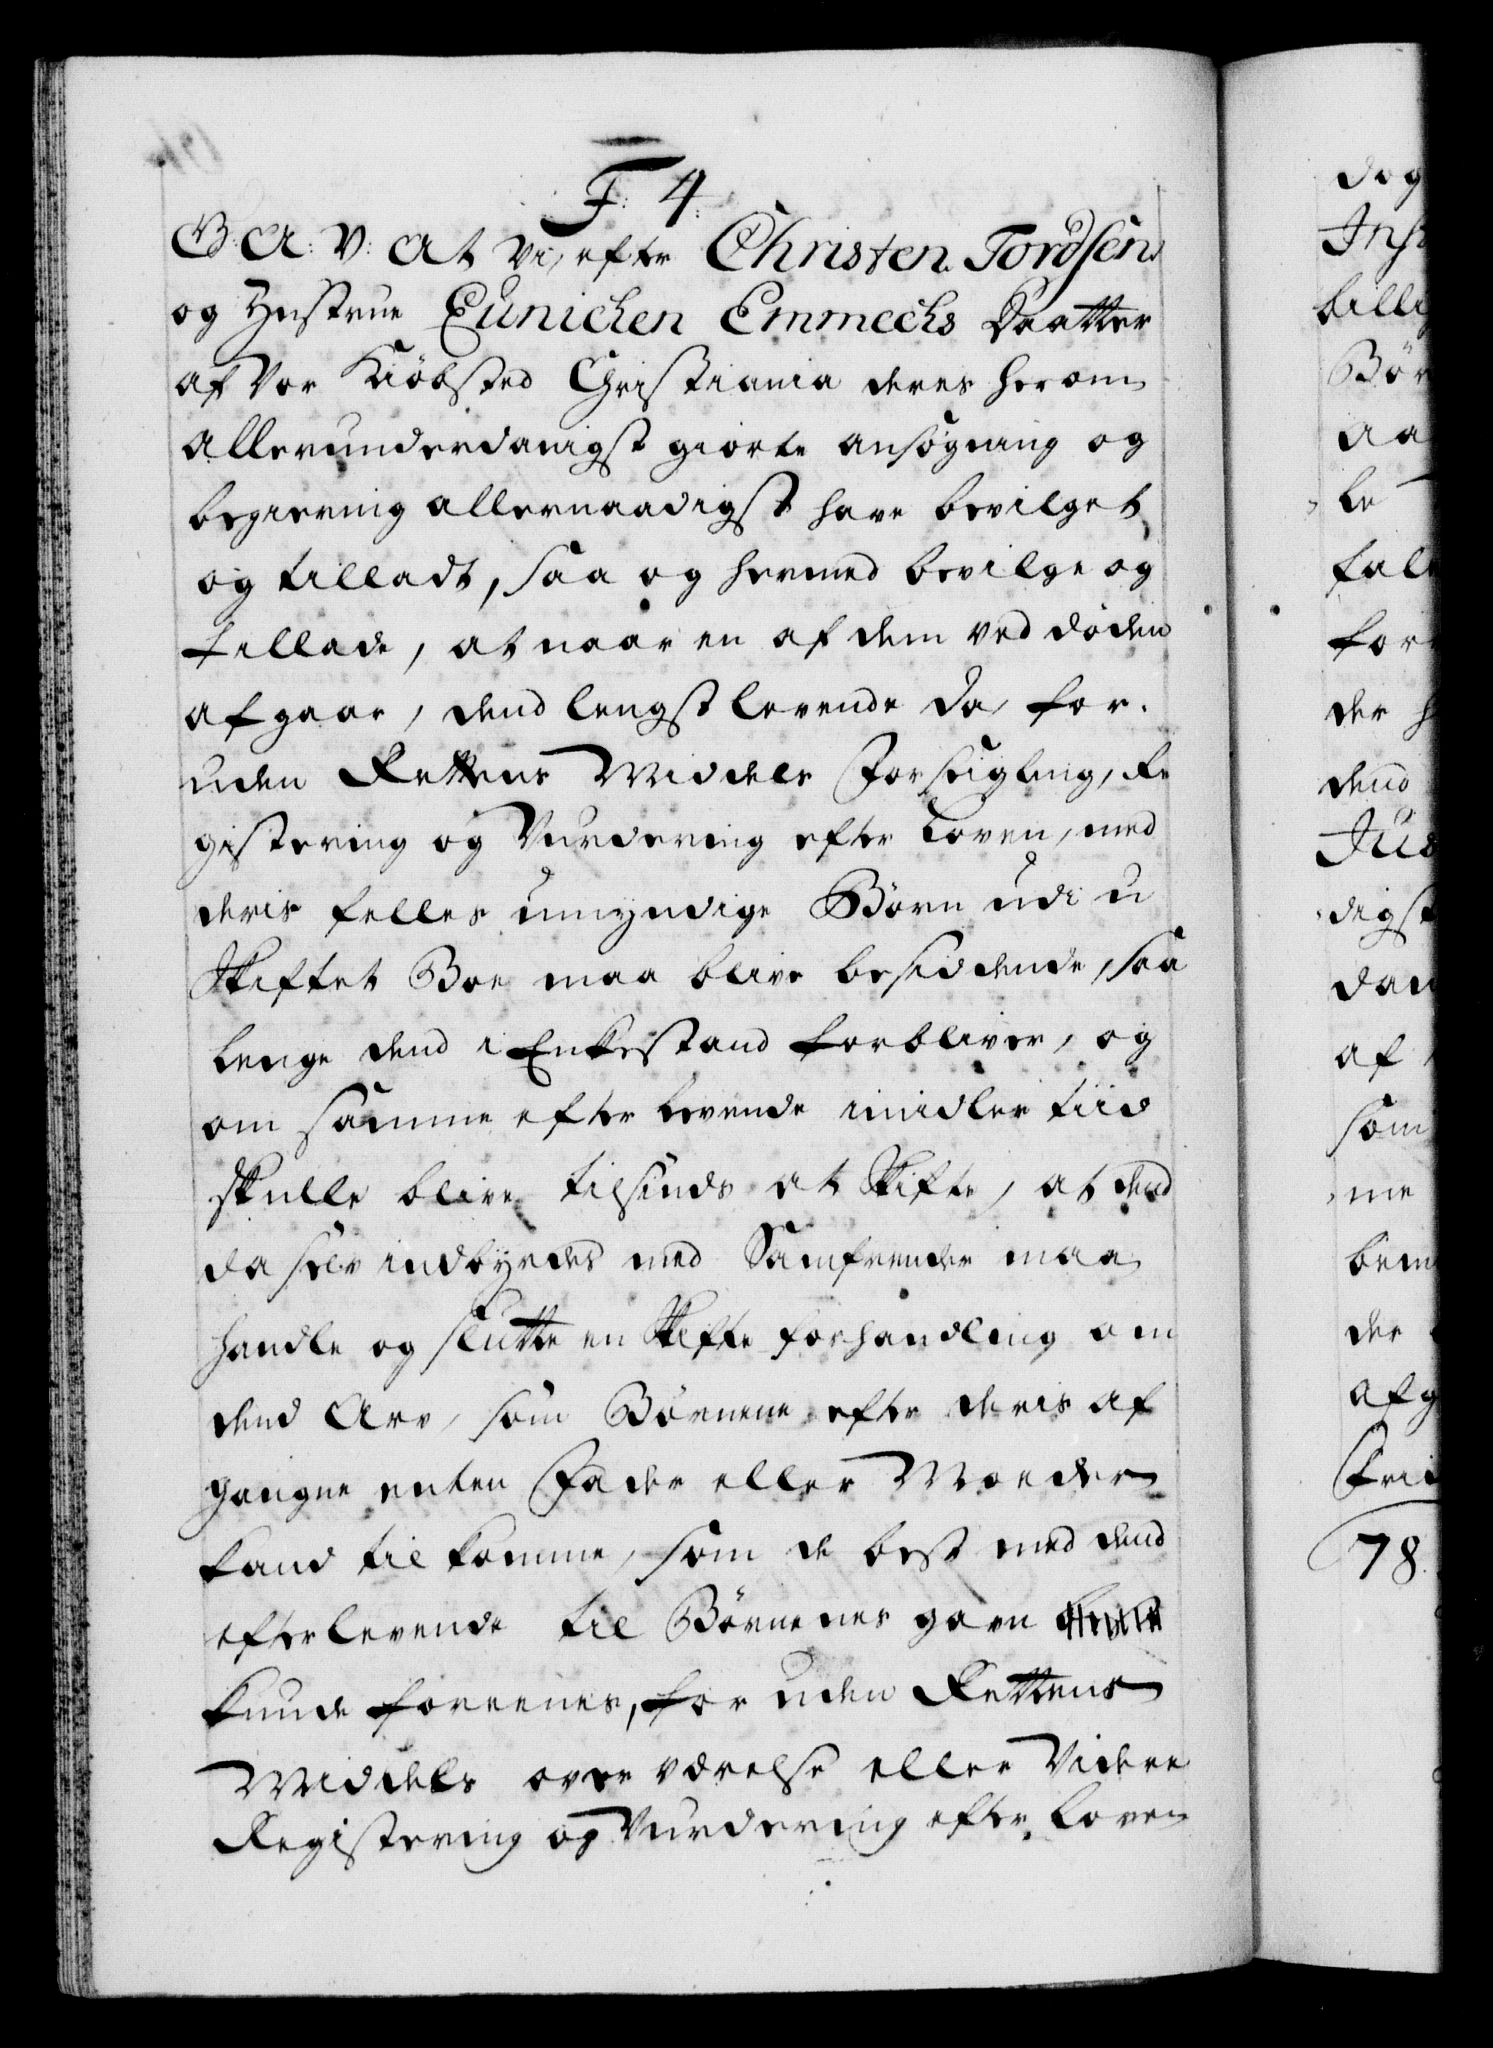 F: 4.
G: A: V: At Vi, efter Christen Tordsen
og Hustrue Eunichen Emmechs Daatter
af Vor Kiöbsted Christiania deres herom
allerunderdanigst giorte ansögning og
begiering allernaadigst have bevilget
og tilladt, saa og hermed bevilge og
tillade, at naar en af dem ved döden
afgaar, dend lengstlevende da, for-
uden Rettens Middels Forseigling, Re
gistering og Vurdering efter Loven, med
deris felles umyndige Börn udi u
skiftet Boe maa blive besiddende, saa
lenge dend i Enkestand forbliver, og
om samme efterlevende imidler tiid
skulle blive tilsinds at skifte, at dend
da selv indbyrdes med Samfrender maa
handle og slutte en skifte forhandling om
dend Arv, som Börnene efter deris af
gangne enten Fader eller Moeder
kand tilkomme, som de best med dend
efterlevende til Börnenes gavn
kunde foreenes, for uden Rettens
Middels over værelse eller Videre
Registering og Vurdering efter Loven
dog
billi
Bör
aa
le
fal
for
der
dend
digst
dan
af
som
me
bem
der
afg
78.